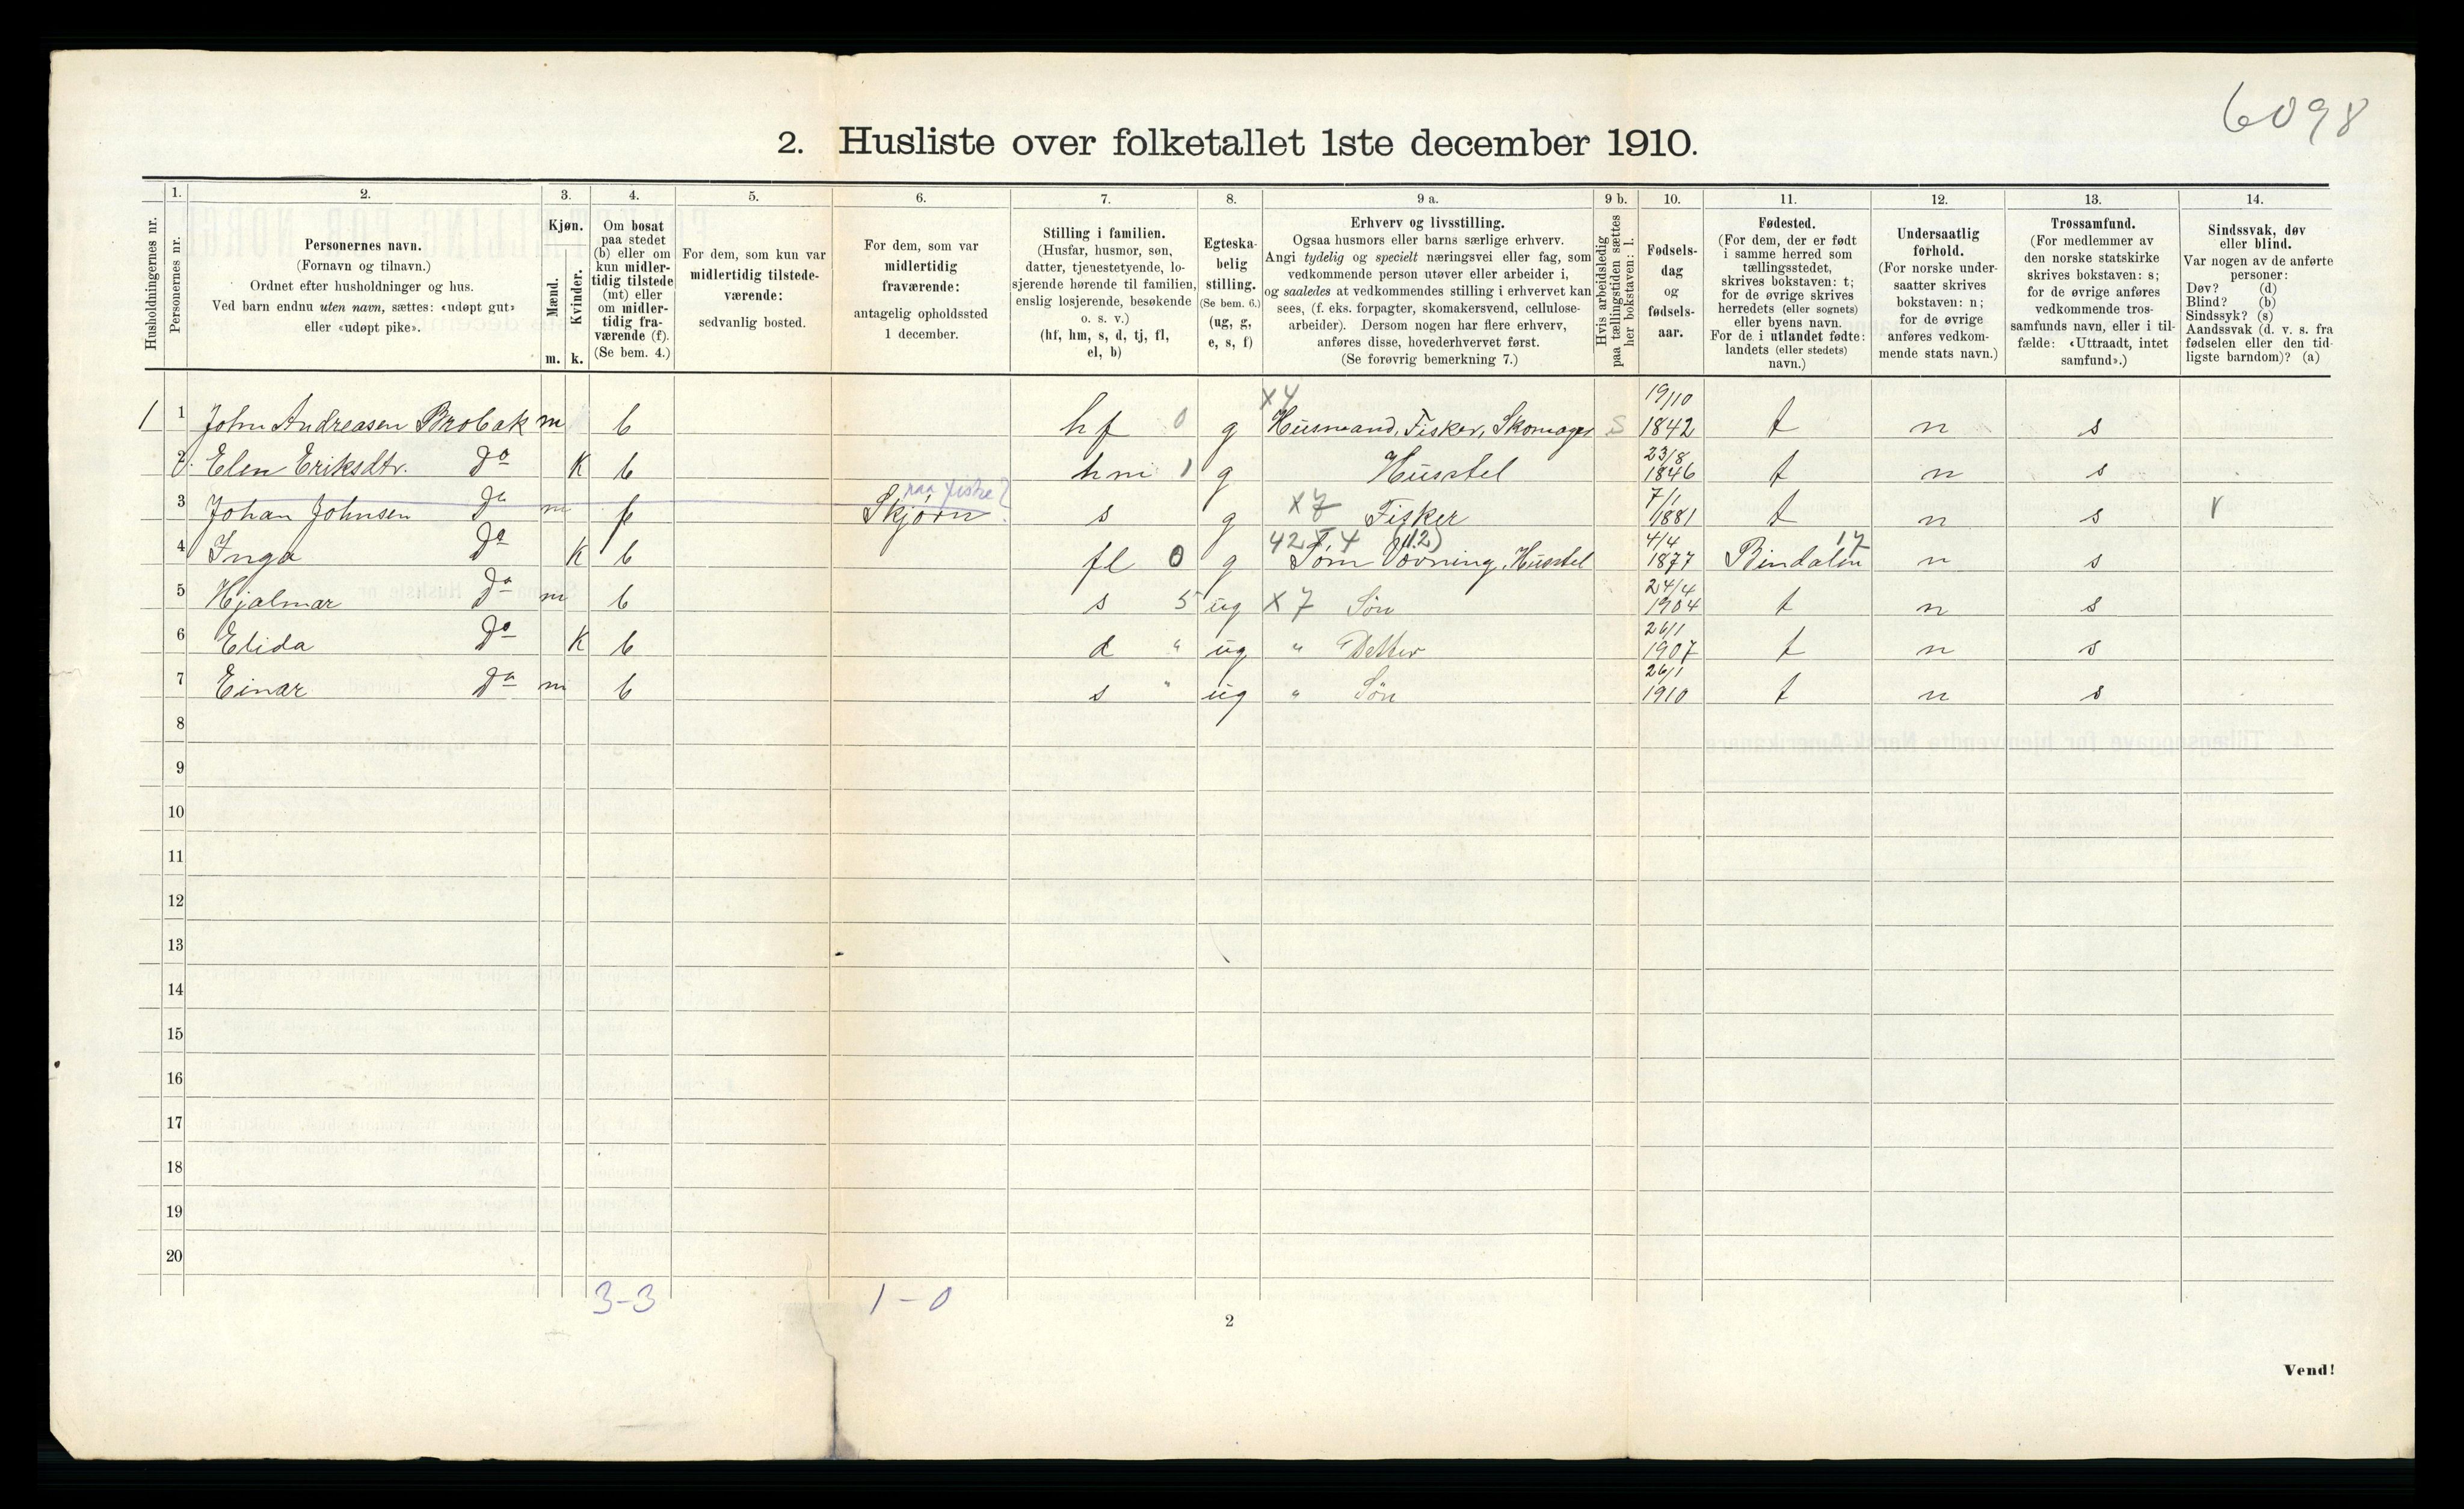 6098
2. Husliste over folketallet 1ste december 1910.
Husholdningernes nr.
1.
Personernes nr.
2.
Personernes navn.
(Fornavn og tilnavn.)
Ordnet efter husholdninger og hus.
Ved barn endnu uten navn, sættes: «udøpt gut»
eller «udøpt pike».
3.
Kjøn.
Mænd.
Kvinder.
m. k.
4.
Om bosat
paa stedet
(b) eller om
kun midler-
tidig tilstede
(mt) eller
om midler-
tidig fra-
værende (f).
(Se bem. 4.)
5.
For dem, som kun var
midlertidig tilstede-
værende:
sedvanlig bosted.
6.
For dem, som var
midlertidig
fraværende:
antagelig opholdssted
1 december.
7.
Stilling i familien.
(Husfar, husmor, søn,
datter, tjenestetyende, lo-
sjerende hørende til familien,
enslig losjerende, besøkende
o. s. v.)
(hf, hm, s, d, tj, fl,
el, b)
8.
Egteska-
belig
stilling.
(Se bem. 6.)
(ug, g,
e, s, f)
9 a.
Erhverv og livsstilling.
Ogsaa husmors eller barns særlige erhverv.
Angi tydelig og specielt næringsvei eller fag, som
vedkommende person utøver eller arbeider i,
og saaledes at vedkommendes stilling i erhvervet kan
sees, (f. eks. forpagter, skomakersvend, cellulose-
arbeider). Dersom nogen har flere erhverv,
anføres disse, hovederhvervet først.
(Se forøvrig bemerkning 7.)
9 b.
Hvis arbeidsledig
paa tællingstiden sættes
her bokstaven: l.
10.
Fødsels-
dag
og
fødsels-
aar.
11.
Fødested.
(For dem, der er født
i samme herred som
tællingsstedet,
skrives bokstaven: t;
for de øvrige skrives
herredets (eller sognets)
eller byens navn.
For de i utlandet fødte:
landets (eller stedets)
navn.)
12.
Undersaatlig
forhold.
(For norske under-
saatter skrives
bokstaven: n;
for de øvrige
anføres vedkom-
mende stats navn.)
13.
Trossamfund.
(For medlemmer av
den norske statskirke
skrives bokstaven: s;
for de øvrige anføres
vedkommende tros-
samfunds navn, eller i til-
fælde: «Uttraadt, intet
samfund».)
14.
Sindssvak, døv
eller blind.
Var nogen av de anførte
personer:
Døv? (d)
Blind? (b)
Sindssyk? (s)
Aandssvak (d. v. s. fra
fødselen eller den tid-
ligste barndom)? (a)
1 1 John Andreasen Brobak m b hf 0 g x4 Husmand, Fisker, Skomager S 19/10 1842 t n s
2 Elen Eriksdtr. do K b hm 1 g Husstel 23/8 1846 t n s
3 Johan Johnsen do m f Skjørn paa fiske? s g x7 Fisker 7/1 1881 t n s
4 Inga do K b fl 0 g 42 T, 4 (11.2) Søm Vævning, Husstel 4/4 1877 Bindalen 17 n s
5 Hjalmar do m b s 5 ug x 7 Søn 24/4 1904 t n s
6 Elida do K b d " ug " Datter 26/1 1907 t n s
7 Einar do m b s " ug " Søn 26/1 1910 t n s
8
9
10
11
12
13
14
15
16
17
18
19
20
3-3 1-0
2
Vend!